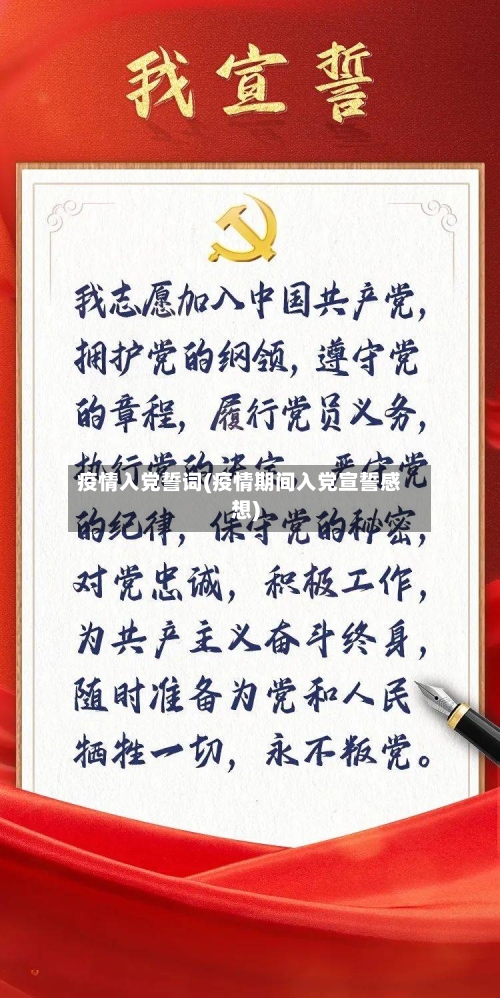 我宣誓
我志愿加入中国共产党，
拥护党的纲领，遵守党
的章程，履行党员义务，
执行党的决定，严守党
疫情入党誓词(疫情期间入党宣誓感
想)
的纪律，保守党的秘密，
对党忠诚，积极工作，
为共产主义奋斗终身，
随时准备为党和人民
牺牲一切，永不叛党。